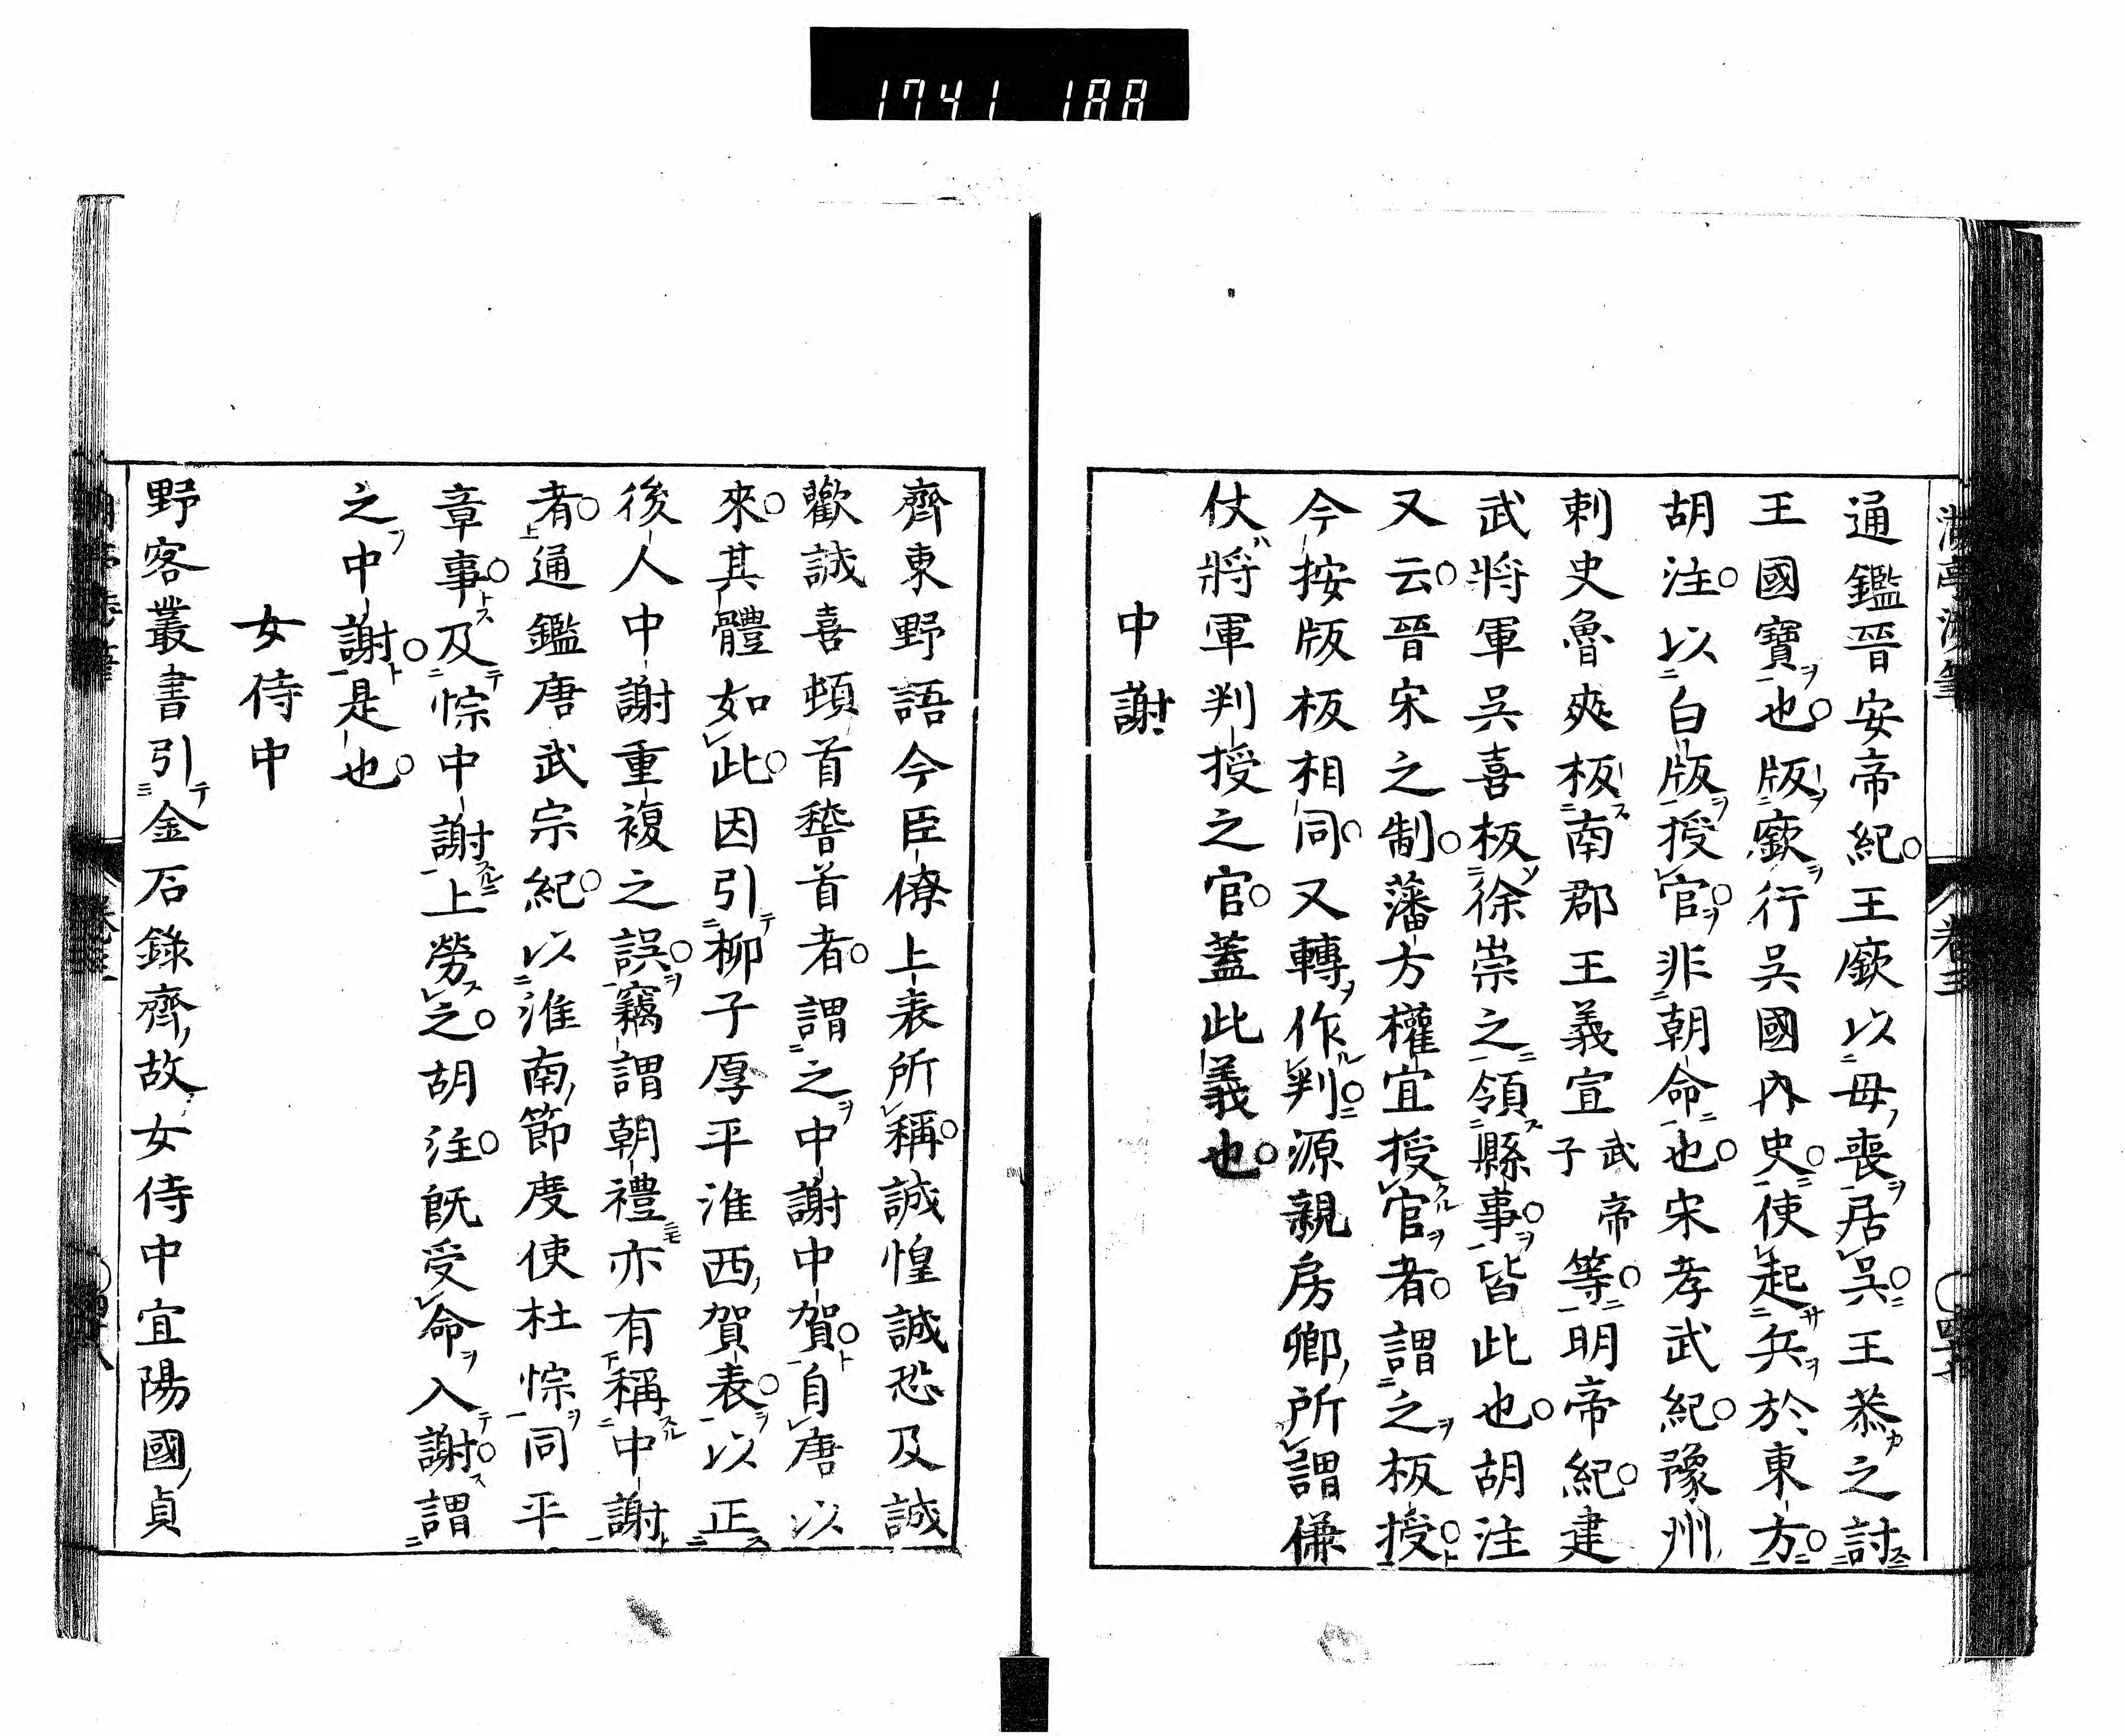 1741 188
通鑑晉安帝紀王廞以母喪居吳王恭之討
王國寶也版廞行吳國內史使起兵於東方
胡注以白版授官非朝命也宋孝武紀豫州
刺史魯爽板南郡王義宣武帝子等明帝紀建
武將軍吳喜板徐崇之領縣事皆此也胡注
又云晉宋之制藩方權宜授官者謂之板授
今按版板相同又轉作判源親房卿所謂傔
仗將軍判授之官蓋此義也
中謝
齊東野語今臣僚上表所稱誠惶誠恐及誠
歡誠喜頓首稽首者謂之中謝中賀自唐以
來其體如此因引柳子厚平淮西賀表以正
後人中謝重複之誤竊謂朝禮亦有稱中謝
者通鑑唐武宗紀以淮南節度使杜悰同平
章事及悰中謝上勞之胡注既受命入謝謂
之中謝是也
女侍中
野客叢書引金石錄齊故女侍中宜陽國貞